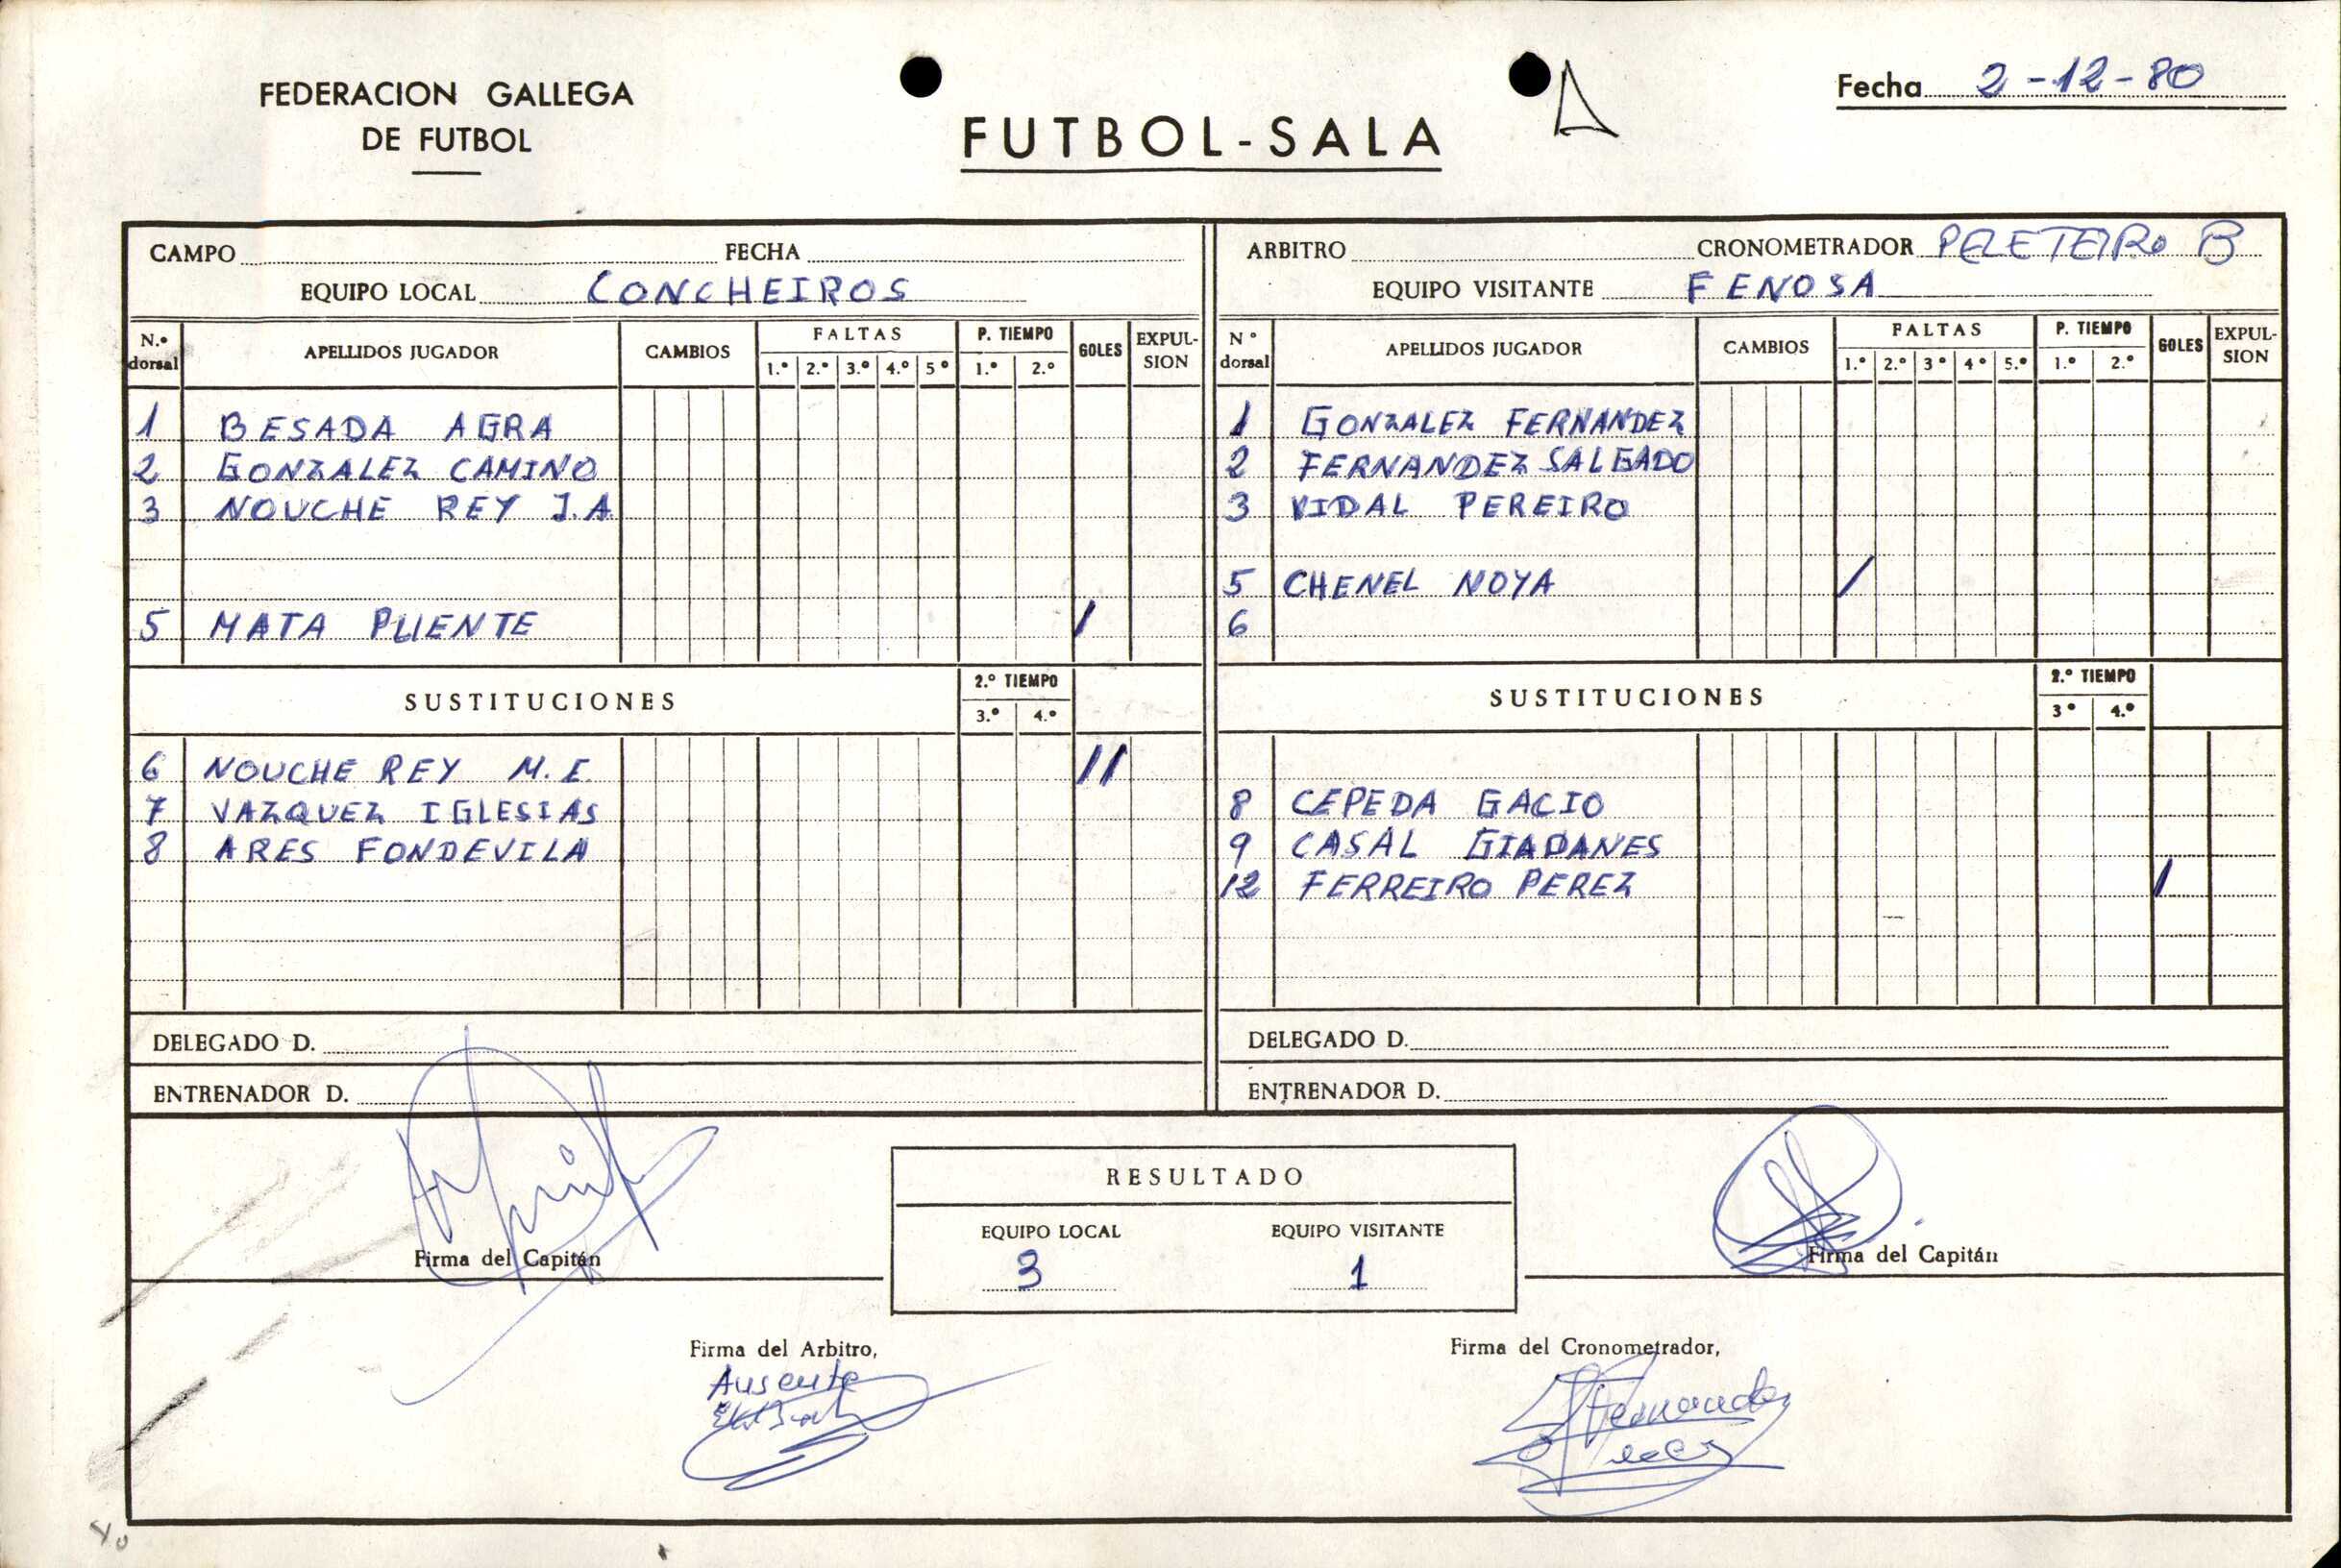 FEDERACION GALLEGA
DE FUTBOL
FUTBOL-SALA
Fecha 2-12-80
CAMPO FECHA
EQUIPO LOCAL CONCHEIROS
N.º dorsal APELLIDOS JUGADOR CAMBIOS FALTAS P. TIEMPO GOLES EXPUL-SION
1.º 2.º 3.º 4.º 5º 1.º 2.º
1 BESADA AGRA
2 GONZALEZ CAMINO
3 NOUCHE REY J.A
5 MATA PUENTE /
SUSTITUCIONES 2.º TIEMPO
3.º 4.º
6 NOUCHE REY M.E. //
7 VAZQUEZ IGLESIAS
8 ARES FONDEVILA
DELEGADO D.
ENTRENADOR D.
ARBITRO CRONOMETRADOR PELETEIRO B
EQUIPO VISITANTE FENOSA
Nº dorsal APELLIDOS JUGADOR CAMBIOS FALTAS P. TIEMPO GOLES EXPUL-SION
1.º 2.º 3º 4º 5.º 1.º 2.º
1 GONZALEZ FERNANDEZ
2 FERNANDEZ SALGADO
3 VIDAL PEREIRO
5 CHENEL NOYA /
6
SUSTITUCIONES 2.º TIEMPO
3º 4.º
8 CEPEDA GACIO
9 CASAL GIADANES
12 FERREIRO PEREZ /
DELEGADO D.
ENTRENADOR D.
RESULTADO
EQUIPO LOCAL EQUIPO VISITANTE
3 1
Firma del Capitán
Firma del Capitán
Firma del Arbitro,
Ausente
Firma del Cronometrador,
Fernandez